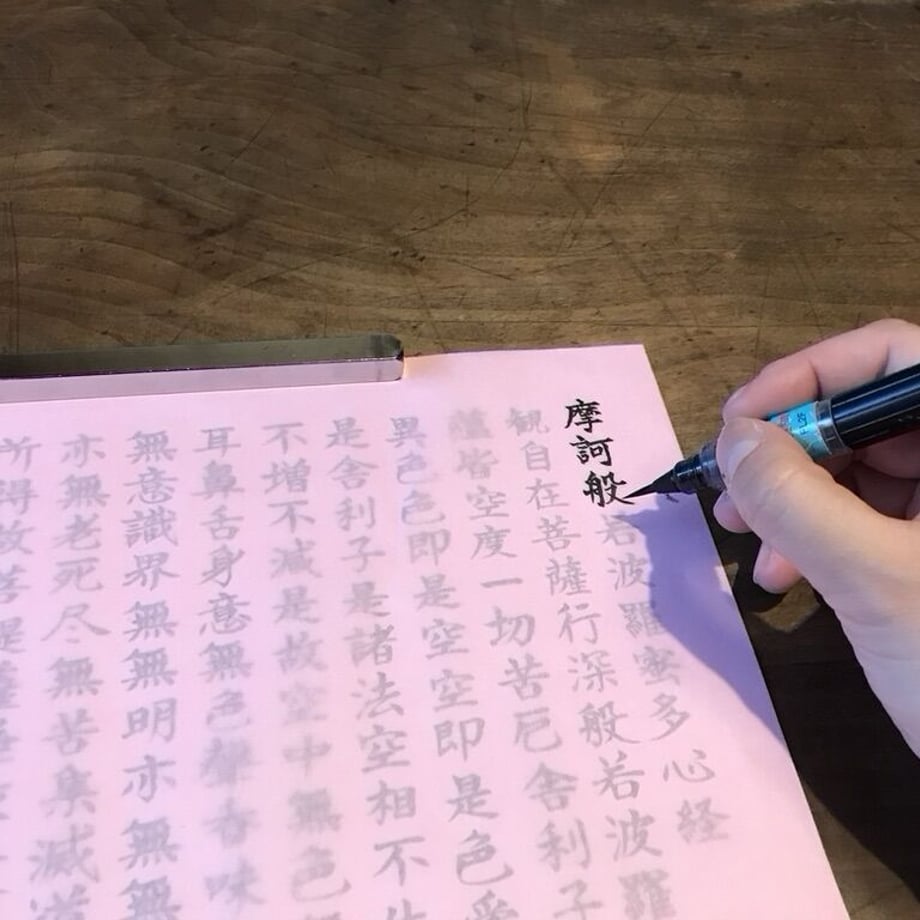 摩訶般若波羅蜜多心経
観自在菩薩行深般若波羅
蘊皆空度一切苦厄舎利子
異色色即是空空即是色受
是舎利子是諸法空相不生
不増不減是故空中無色無
耳鼻舌身意無色聲香味
無意識界無無明亦無無
亦無老死尽無苦集滅道
所得故菩提薩